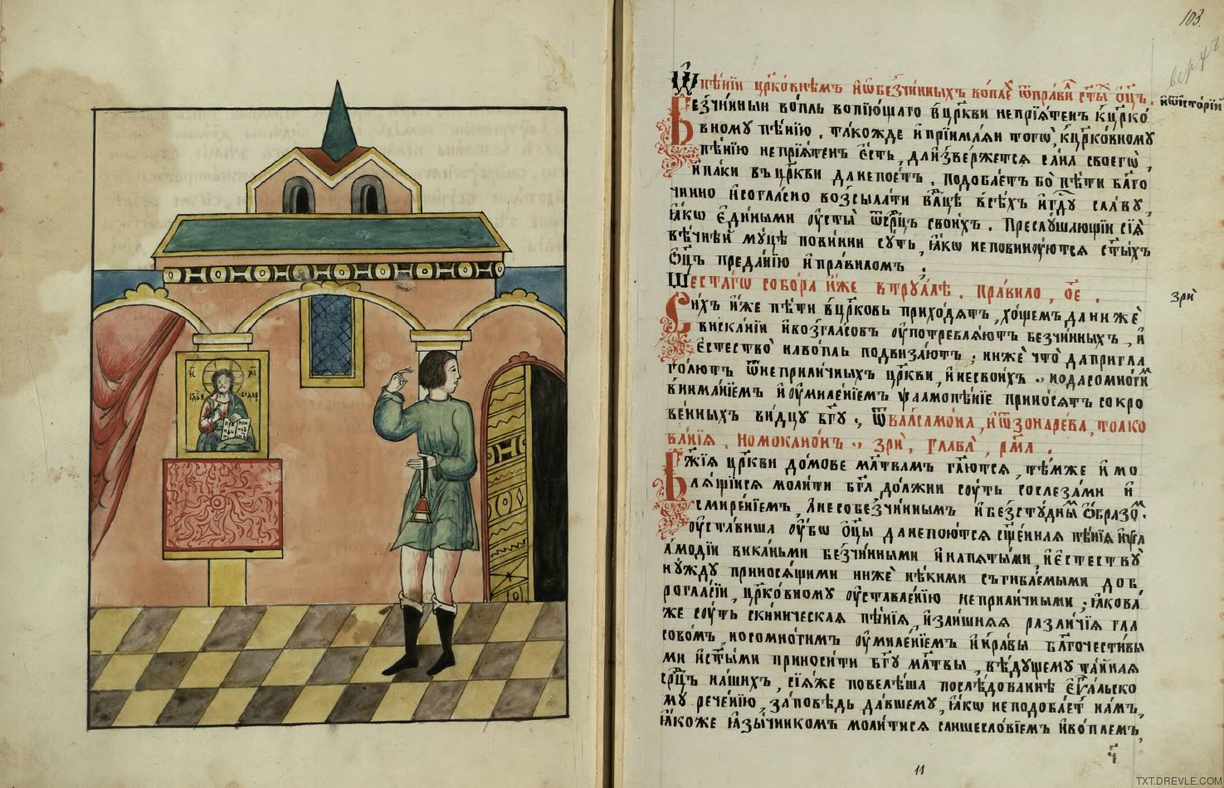 ІС ХС
103
Ѡ пѣнїи црко́внѣмъ и҆ ѡ҆ безчи́нныхъ во́плѣ ѿ пра́вилъ ст҃ы́хъ ѻ҆ц҃ъ.
Безчи́нныи во́пль вопїю́щаго в цр҃кви непрїя́тенъ к црко́
вному пѣ́нїю. та́кожде и҆ прїима́ѧи того̀, к црко́вному
пѣ́нїю непрїя́тенъ є҆́сть, да и҆зве́ржетсѧ са́на своегѡ̀
и҆ па́ки въ цр҃кви да не пое́тъ. подоба́етъ бо пѣ́ти бл҃го
чи́нно и҆ согла́сно возсыла́ти влⷣцѣ всѣ́хъ и҆ гдⷭ҇у сла́ву,
ꙗ҆́кѡ є҆ди́ными ᲂу҆сты̀ ѿ срⷣцъ свои́хъ. Преслꙋша́ющїи сїѧ̑
вѣ́чнѣй мꙋ́цѣ пови́нни сꙋ́ть, ꙗ҆́кѡ не повинꙋ́ютсѧ ст҃ы́хъ
ѻ҆ц҃ъ преда́нїю и҆ пра́виломъ.
Шеста́гѡ собо́ра и҆́же в трꙋ́ллѣ. Пра́вило, ое.
Си́хъ и҆́же пѣ́ти в цр҃ковь прихо́дѧтъ, хо́щемъ да нижѐ
вискани́й и҆ возгласо́въ ᲂу҆потреблѧ́ютъ безчи́нныхъ, и҆
є҆стество̀ на во́пль подвиза́ютъ; нижѐ что̀ да пригла
го́лютъ ѿ неприли́чныхъ цр҃кви, и҆ не свои́хъ, но да со мно́гиⷨ
внима́нїемъ и҆ ᲂу҆миле́нїемъ ѱалмопѣ́нїе прино́сѧтъ сокро
ве́нныхъ ви́дцꙋ бг҃ꙋ, Ѿ валсамо́на, и҆ ѿ зонаре́ва, толко
ва́нїѧ. Номока́нонъ, зрѝ, глава̀, рма.
Бж҃їѧ цр҃кви до́мове мл҃твамъ гл҃ютсѧ, тѣ́мже и҆ мо
лѧ́щїисѧ моли́ти бг҃а до́лжни сꙋ́ть со слеза́ми и҆
смире́нїемъ, а҆ не со безчи́ннымъ и҆ безстꙋ́днымъ ѻ҆́бразоⷨ.
ᲂу҆ста́виша ᲂу҆́бѡ ѻ҆ц҃ы̀ да не пою́тсѧ сщ҃е́ннаѧ пѣ̑нїѧ и҆ ѱа
амоді́и вика́ньми безчи́нными и҆ напѧ́тыми, и҆ є҆стествꙋ̀
нꙋ́ждꙋ принося́щими нижѐ нѣ́кими сꙋгиба́емыми доб
рогла́сїи, црко́вномꙋ ᲂу҆ставле́нїю неприли́чными; ꙗ҆кова́
же сꙋ́ть скини́ческаѧ пѣ̑нїѧ, и҆ зли́шнѧѧ разли́чїѧ гла
совѡ́мъ, но со мно́гимъ ᲂу҆миле́нїемъ и҆ нра́вы бл҃гочести́вы
ми и҆ чи́стыми приноси́ти бг҃ꙋ мл҃твы, вѣ́дꙋщемꙋ та̑йнаѧ
срⷣцъ на́шихъ, сїѧ́же повелѣ́ша послѣ́дованїе є҆ѵⷢльско
мꙋ рече́нїю, за́повѣдь да́вшемꙋ, ꙗ҆́кѡ не подоба́етъ на́мъ,
ꙗ҆́коже ꙗ҆зы́чникомъ моли́тисѧ слишесло́вїемъ и҆ во́племъ,
и҆ ѿ исторїи
зрѝ
11
TXT.DREVLE.COM